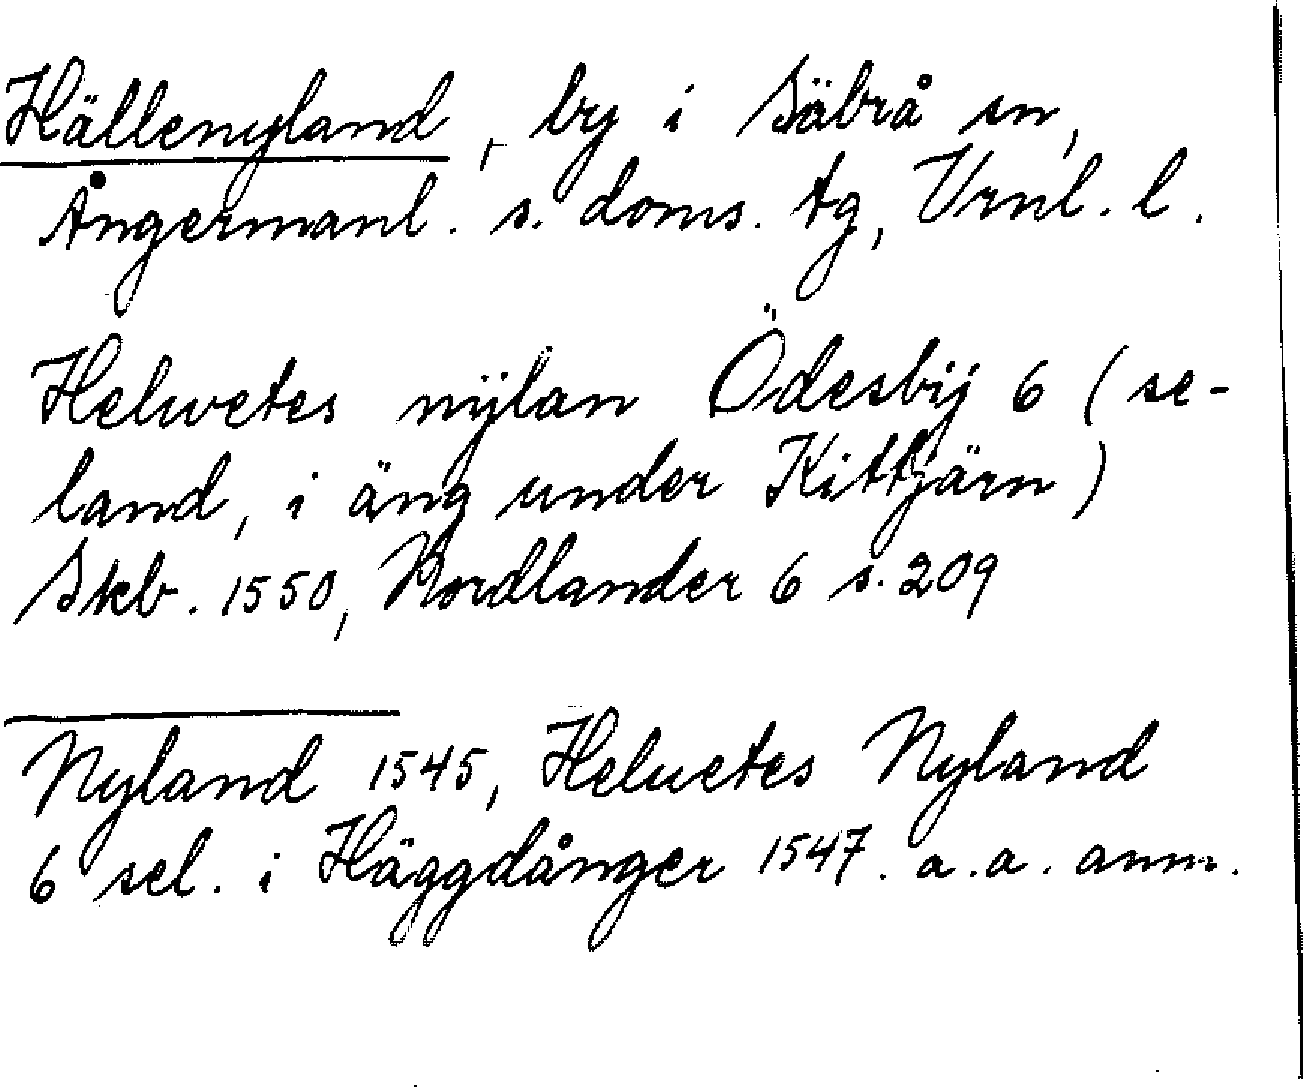 Hällenyland, by i Säbrå sn,
Ångermanl. s. doms. tg, Vrnl. l.
Helwetes nÿlan Ödesbÿ 6 (se-
land, i äng under Kittjärn)
Skb. 1550, Nordlander 6 s. 209
Nyland 1545, Heluetes Nyland
6 sel. i Häggdånger 1547. a.a. anm.